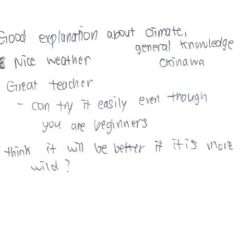 Good explanation about climate,
general knowledge
Nice weather Okinawa
Great teacher
- can try it easily even though
you are beginners
think it will be better if it is more
wild?